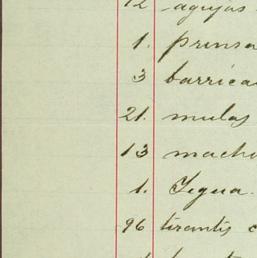 12 agujas
1. prensa
3 barricas
21. mulas
13 macho
1. Yegua.
96 tirantis c